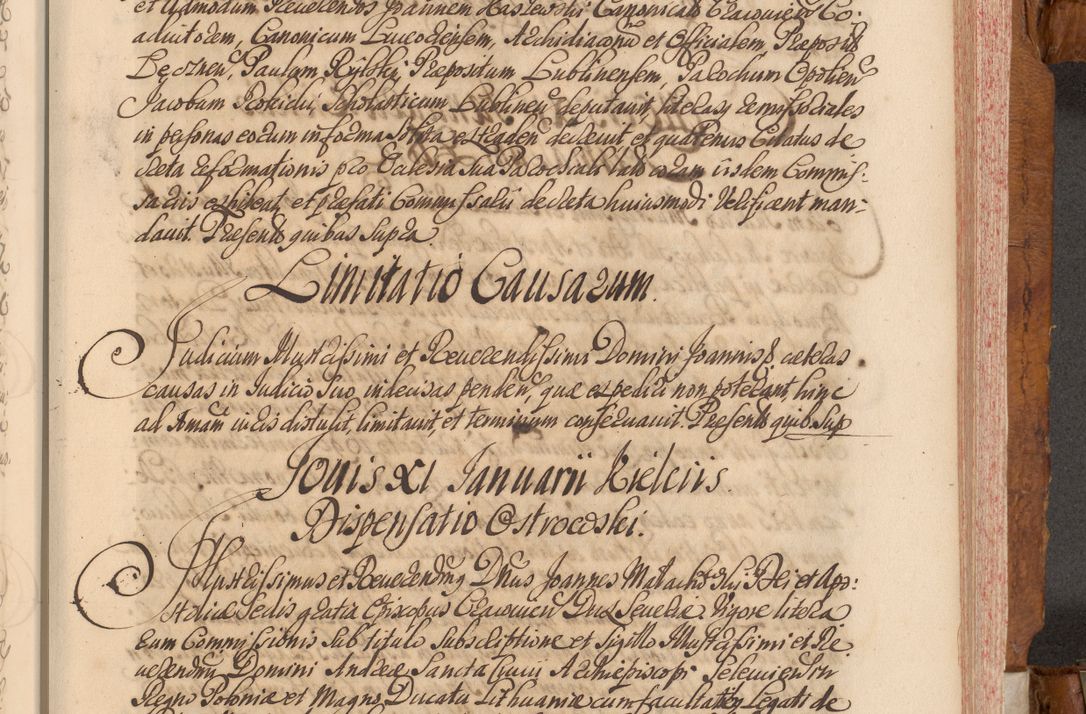 et Admodum Reverendos Joannem Raslewski Canonicum Cracovien Co-
adiutorem, Canonicum Luceoriensem, Archidiaconum et Officialem, Præposit
Lęcznen, Paulum Rylski, Præpositum Lublinensem, Parochum Opolien
Jacobum Scholasticum Lublinen deputavit, literasq remissoriales
in personas eorum in forma solita extraden decrevit et quatenus Citatus de
creta reformationis pro Ecclesia sua Parochiali lata coram iisdem Commis-
sariis exhibeat, et præfati Commissarii decreta huiusmodi Verificent man-
davit. Præsente quibus Supra
Limitatio Causarum.
Judicium Illustrissimi et Reverendissimi Domini Joannis &. cæteras
causas in Judicio suo indecisas penden, quæ expediri non poterant, hinc
ad Iman iuris distulit, limitavit, et terminum conservavit. Præsente quib. Sup
Jovis XI Januarii Kielciis.
Dispensatio Ostrowski.
Illustrissimus et Reverendus Dnus Joannes Malachowski Dei et Apo-
stolicæ Sedis gratia Episcopus Cracovien Dux Severiæ Vigore litera
rum Commissionis sub titulo subscriptione et sigillo Illustrissimi et Re
verendmi Domini Andreæ Sancta Crucii Archiepiscopi Seleucien in
Regno Poloniæ et Magno Ducatu Lithuaniæ cum facultate Legati de